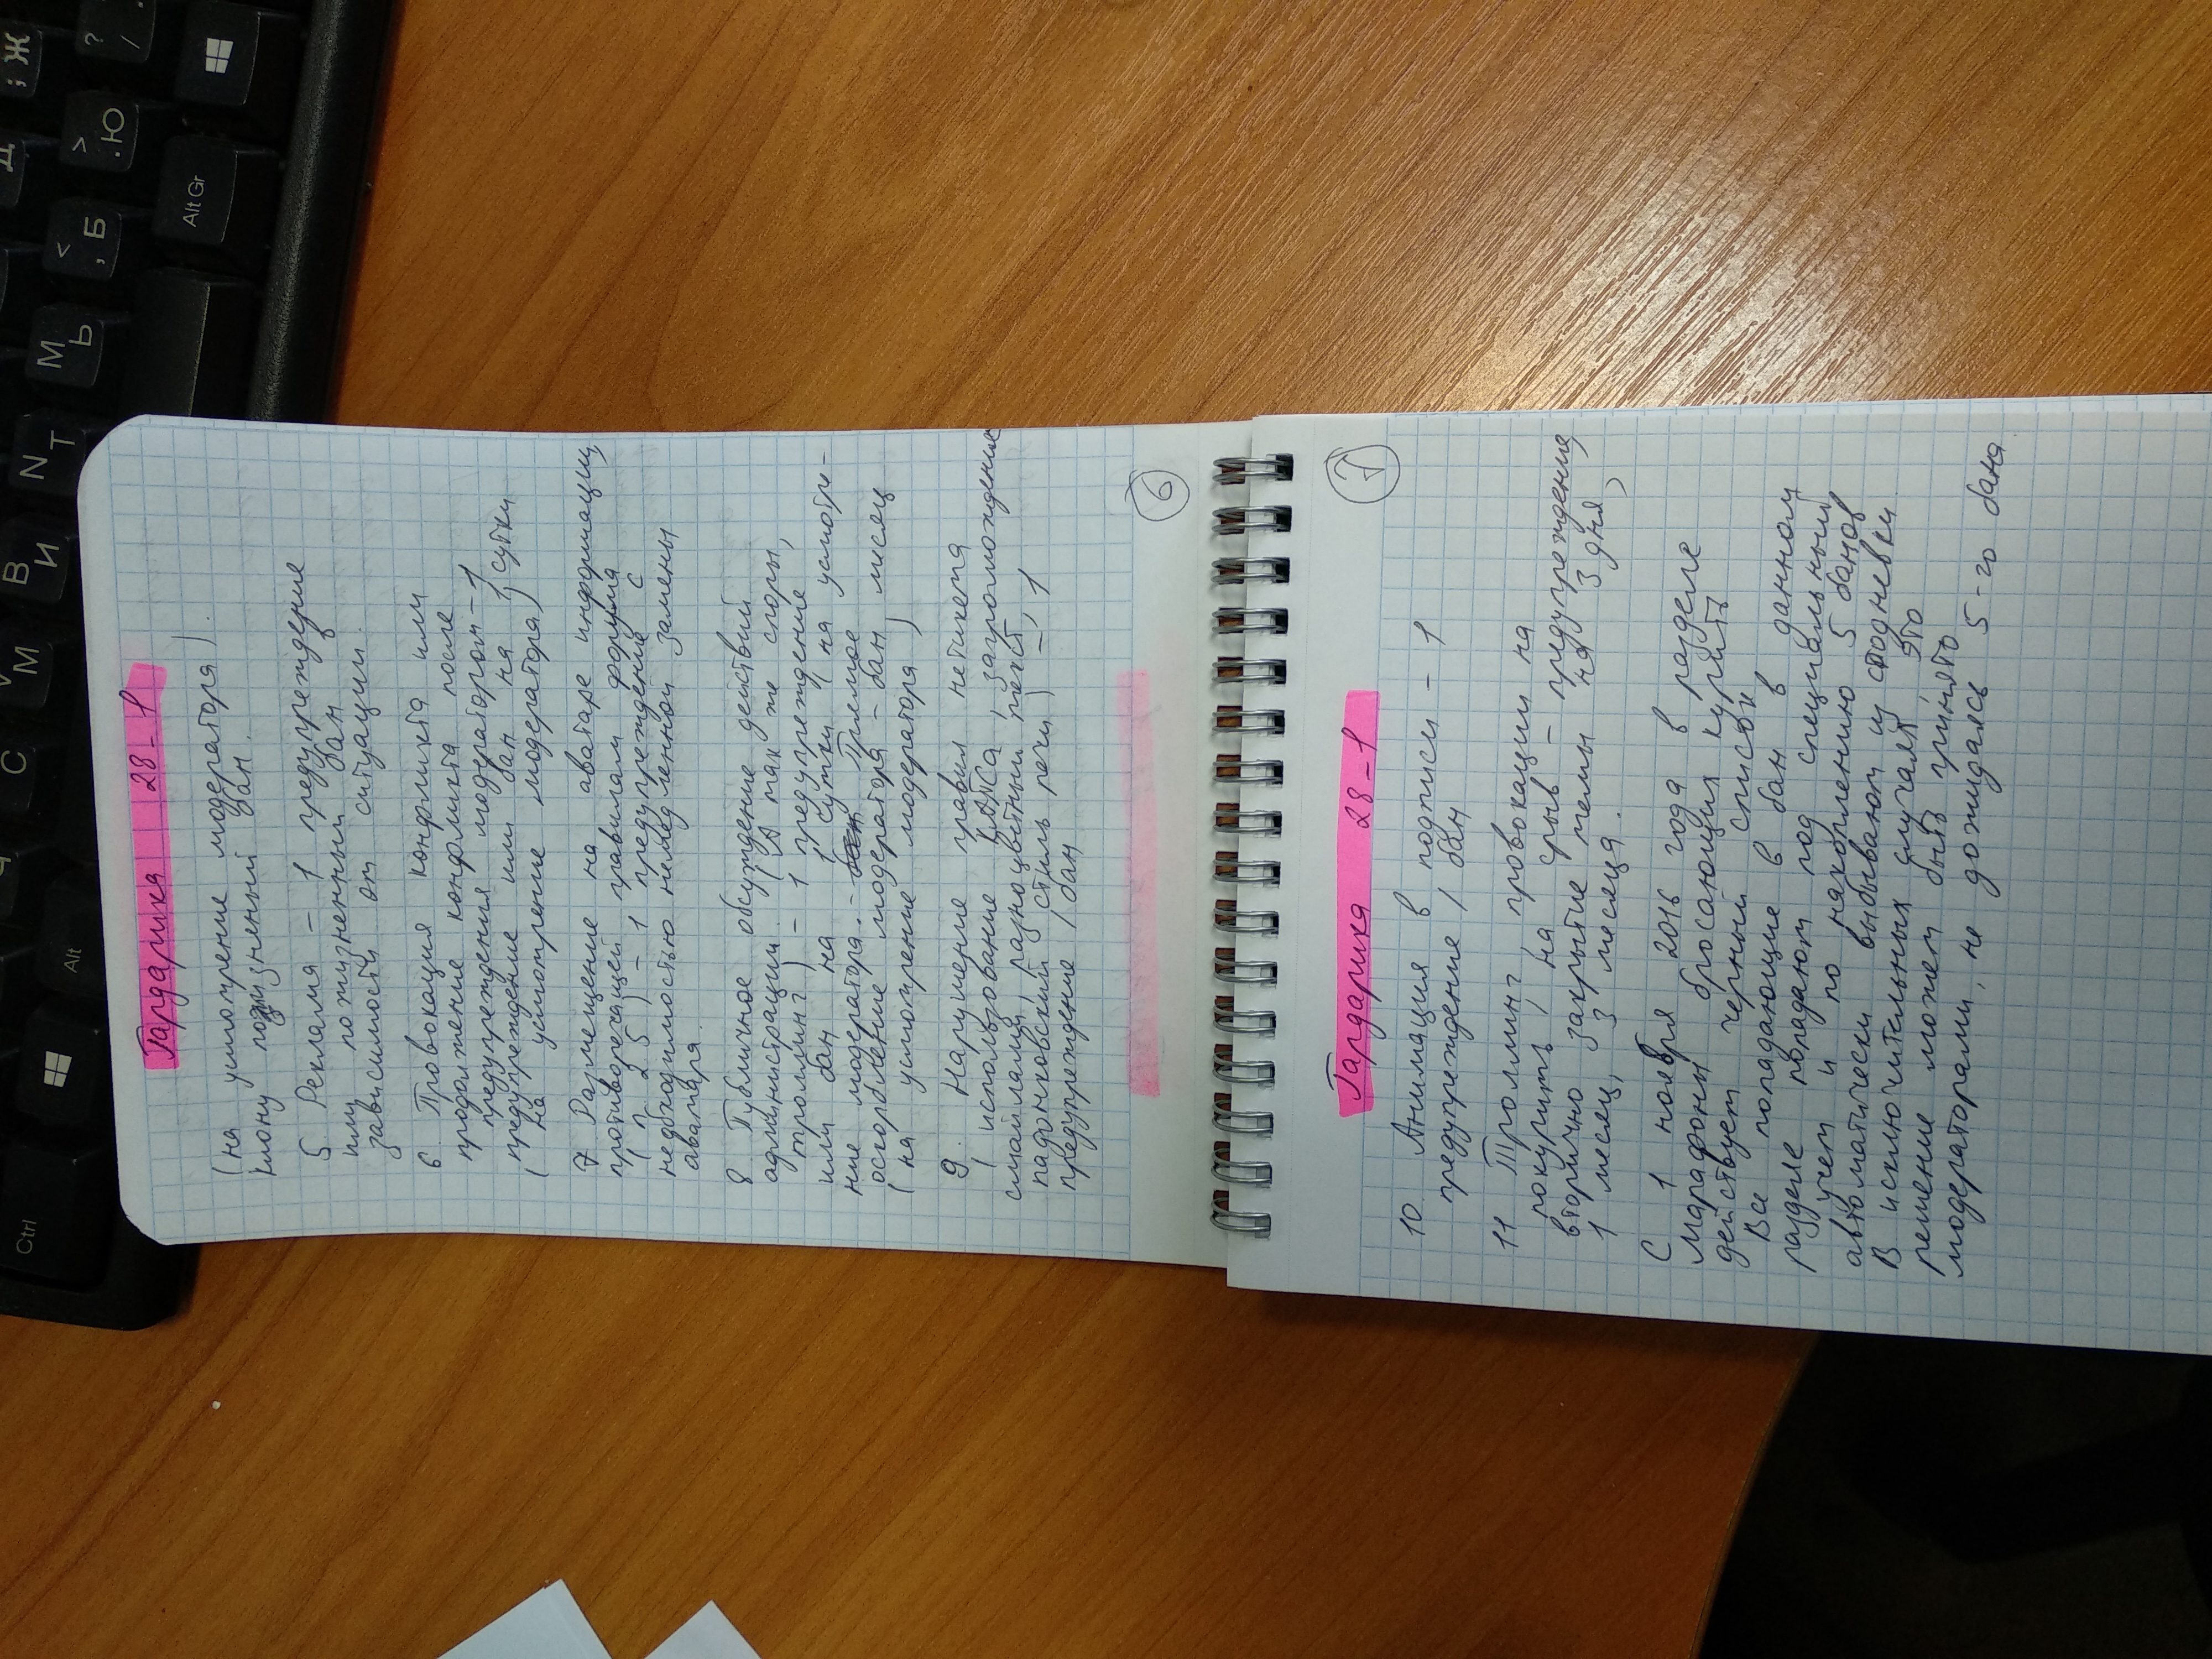 Гардарика 28-1
(на усмотрение модератора).
клону пожизненный бан.
5 Реклама - 1 предупреждение
или пожизненный бан в
зависимости от ситуации.
6. Провокация конфликта или
продолжение конфликта после
предупреждения модератором - 1
предупреждение или бан на 1 сутки
(на усмотрение модератора)
7 Размещение на аватаре информации,
противоречащей правилам форума
(п 2.5) - 1 предупреждение с
необходимостью немедленной замены
аватара.
8 Публичное обсуждение действий
администрации (а так же споры,
троллинг) - 1 предупреждение
или бан на 1 сутки (на усмотре-
ние модератора. Прямое
оскорбление модератора - бан, месяц
(на усмотрение модератора)
9. Нарушение правил нетикета
(использование КАПСа, загромождение
смайлами, разноцветный текст,
падонковский стиль речи) - 1
предупреждение / бан
6
7
Гардарика 28-1
10. Анимация в подписи - 1
предупреждение / бан
11 Троллинг, провокации на
покурить, на срыв - предупреждение,
вторично закрытие темы на 3 дня,
1 месяц, 3 месяца.
С 1 ноября 2016 года в разделе
Марафоны бросающих курить
действует черный список
Все попадающие в бан в данном
разделе попадают под специальный
учет и по накоплению 5 банов
автоматически выбывают из стодневки
В исключительных случаях это
решение может быть принято
модераторами, не дожидаясь 5-го бана
Ctrl
Alt
Alt Gr
С
М
В
И
N
Т
М
Ь
<
,
Б
>
.
Ю
?
/
;
Ж
Д
V